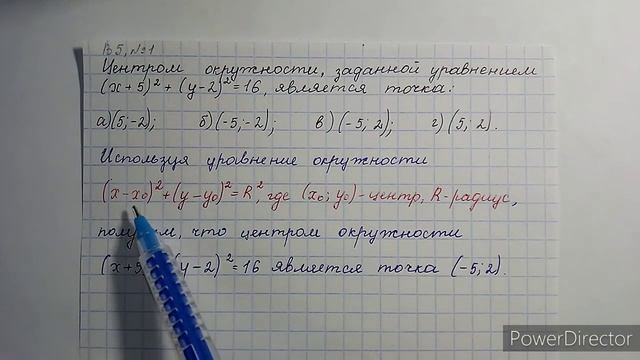 В5, №31
Центром окружности, заданной уравнением
(x+5)²+(y-2)²=16, является точка:
а)(5;-2); б)(-5;-2); в)(-5; 2); г)(5; 2).
Используя уравнение окружности
(x-x₀)²+(y-y₀)²=R², где (x₀; y₀)-центр, R-радиус,
что центром окружности
(x+5 (y-2)²=16 является точка (-5; 2).
PowerDirector